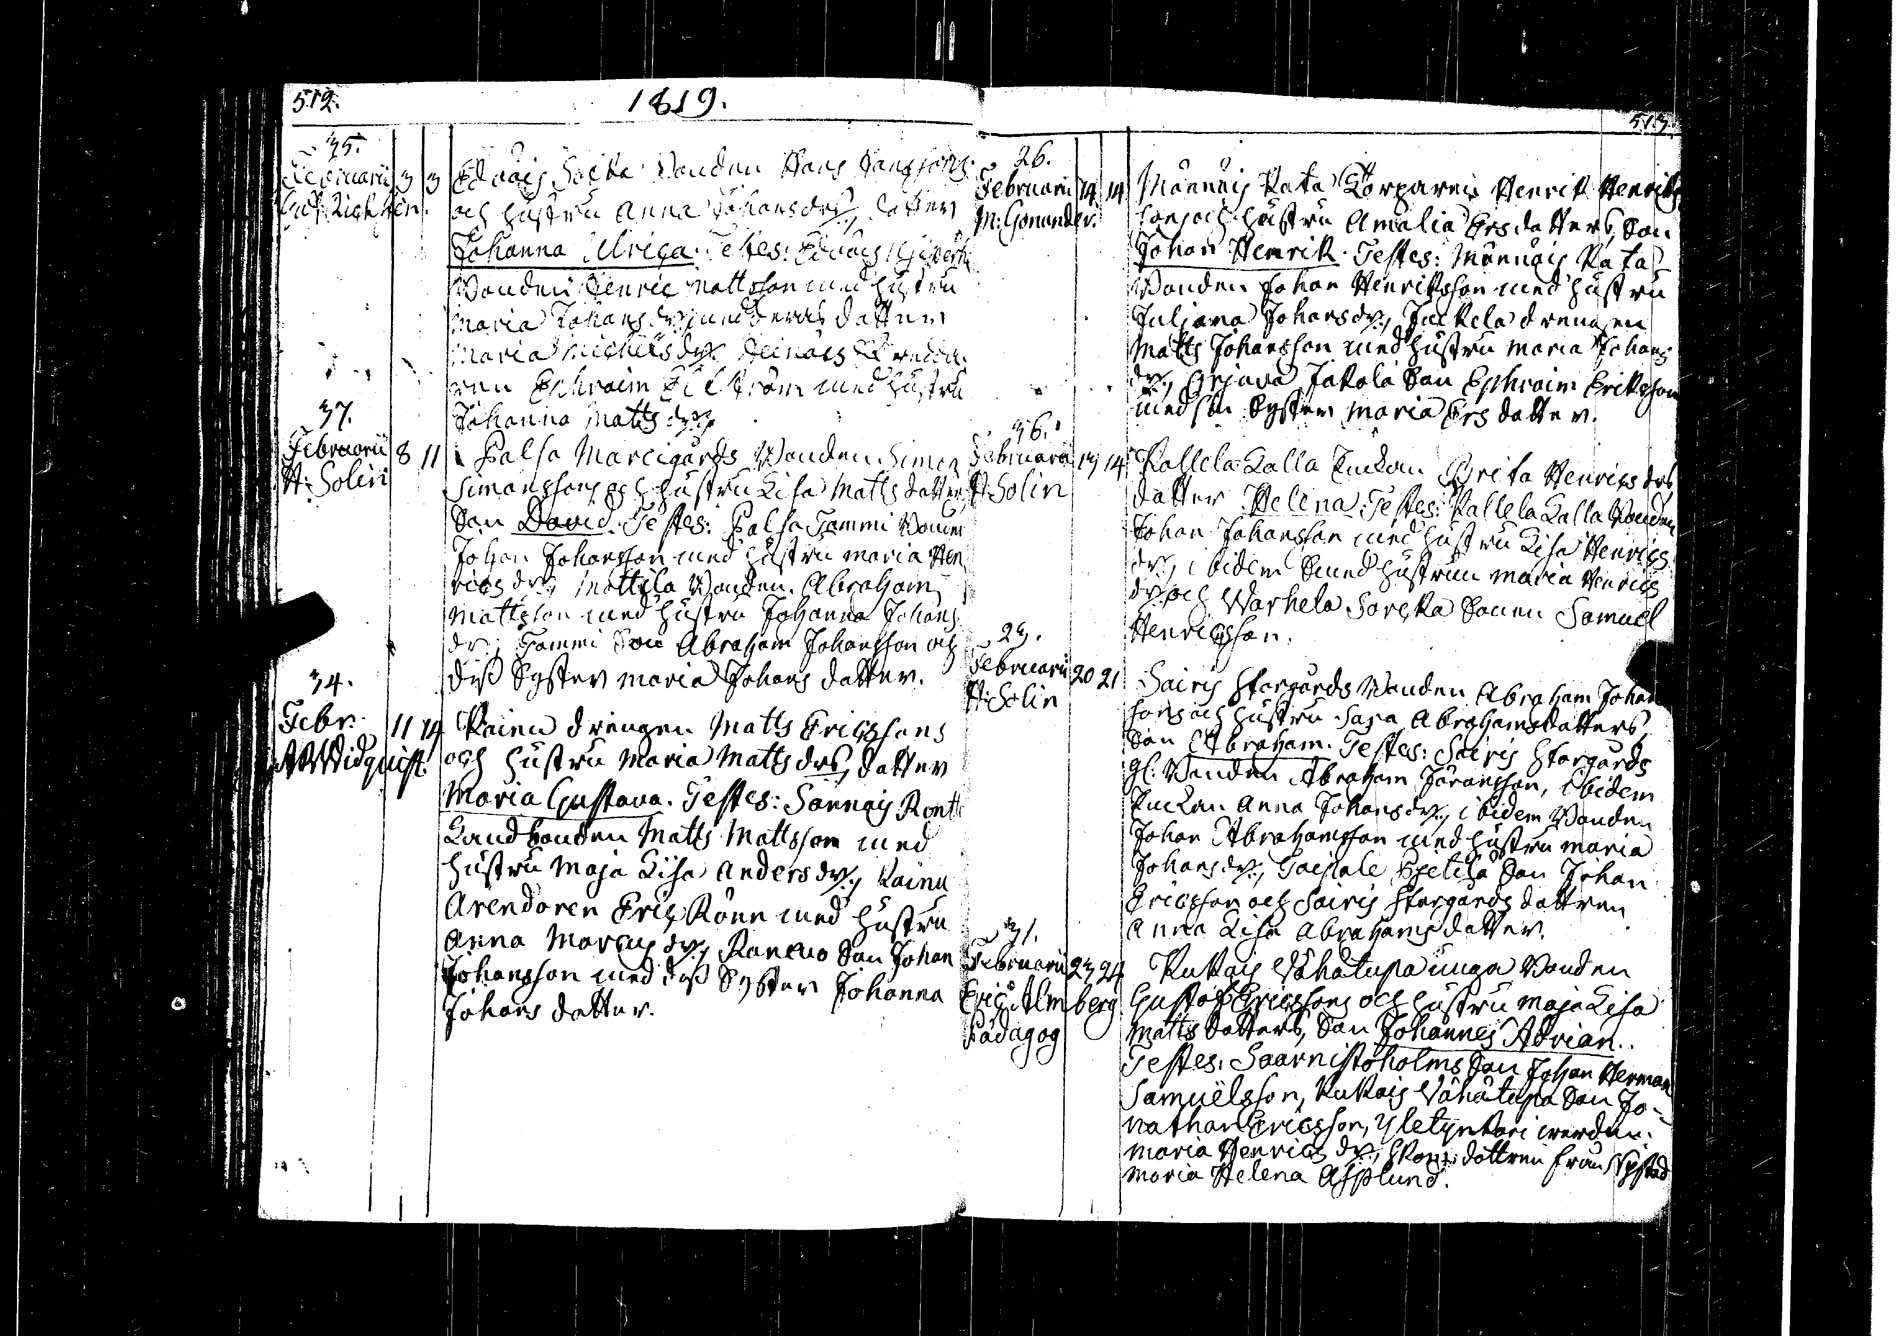 512.
1819.
35.
Februarii 3 3
Eduais Soika Bonden Hans Hanssons
och hustru Anna Johansdrs, dotter
Johanna Ulrica. Testes: Eduais
Bonden Henric Mattsson med hustru
Maria Johansdr, med deras dotter
Maria Michelsdr. Heinäis
Ephraim Ekström med hustru
Johanna Mattsdr.
37.
Februarii 8 11
H: Solin
Palsa Marcigårds Bonden Simon
Simonssons och hustru Lisa Matts dotters,
Son David. Testes: Palsa Tommi Bonden
Johan Johansson med hustru Maria Hen
rics dr, Mattila Bonden Abraham
Mattsson med hustru Johanna Johans
dr, Tommi Son Abraham Johansson och
dess Syster Maria Johans dotter.
34.
Febr. 11 14
A Widquist.
Kainu drengen Matts Ericssons
och hustru Maria Matts drs, dotter
Maria Gustava. Testes: Sannais Rontt
Landbonden Matts Mattsson med
hustru Maja Lisa Andersdr, Kainu
Arendoren Eric Rönn med hustru
Anna Marcus dr, Rancuo Son Johan
Johansson med dess Syster Johanna
Johans dotter.
513.
26.
Februarii 14 14
M: Gonander.
Männäis Kata Torparens Henrik Henriks
sons och hustru Amalia Ersdotters, Son
Johan Henrik. Testes: Männäis Kata
Bonden Johan Henriksson med hustru
Juliana Johansdr, Juckola drengen
Matts Johansson med hustru Maria Johans
dr, Orjava Jakola Son Ephraim Eriksson
med sin Syster Maria Ers dotter.
36.
Februarii 13 14
H: Solin
Kallela Lalla Enkan Brita Henrics drs,
dotter Helena. Testes: Kallela Lalla Bonden
Johan Johansson med hustru Lisa Henrics
dr, ibidem Smed hustrun Maria Henrics
dr och Warhela Sorcka Sonen Samuel
Henricsson.
29.
Februarii 20 21
H: Solin
Sairis Storgårds Bonden Abraham Johans
sons och hustru Sara Abrahamsdotters,
Son Abraham. Testes: Sairis Storgårds
gl. Bonden Abraham Göransson, ibidem
Enckan Anna Johansdr, ibidem Bonden
Johan Abrahamsson med hustru Maria
Johansdr, Son Johan
Ericsson och Sairis Storgårds dottren
Anna Lisa Abrahams dotter.
31.
Februarii 23 24
Eric Almberg
Pädagog
Kukais Vähätupa unga Bonden
Gustaf Ericssons och hustru Maja Lisa
Matts dotters, Son Johannes Adrian.
Testes: Saarnistoholms Son Johan Herman
Samuelsson, Kukais Vähätupa Son Jo-
nathan Ericsson, Yletynkari
Maria Henrics dr, dottren från Nystad
Maria Helena Asplund.